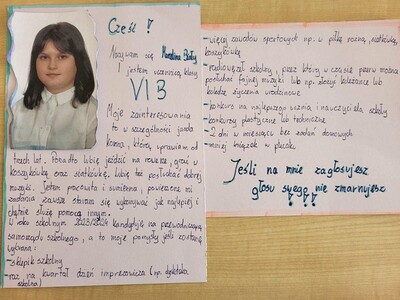 Cześć !
Nazywam się Karolina
I jestem uczennicą klasy
VI B
Moje zainteresowania
to w szczególności jazda
konna, którą uprawiam od
trzech lat. Ponadto lubię jeździć na rowerze, grać w
koszykówkę oraz siatkówkę. Lubię też posłuchać dobrej
muzyki. Jestem pracowita i sumienna, powierzone mi
zadania zawsze staram się wykonywać jak najlepiej i
chętnie służę pomocą innym.
W roku szkolnym 2023/2024 kandyduję na przewodniczącą
samorządu szkolnego, a to moje pomysły jeśli zostanę
wybrana:
- sklepik szkolny
- raz na kwartał dzień imprezowicza (np. dyskoteka
szkolna)
- więcej zawodów sportowych np. w piłkę nożną, siatkówkę,
koszykówkę
- radiowęzeł szkolny, przez który w czasie przerw można
posłuchać fajnej muzyki lub np. złożyć koleżance lub
koledze życzenia urodzinowe
- konkurs na najlepszego ucznia i nauczyciela szkoły
- konkursy plastyczne lub techniczne
- 2 dni w miesiącu bez zadań domowych
- mniej książek w plecaku
Jeśli na mnie zagłosujesz
głosu swego nie zmarnujesz
!!!